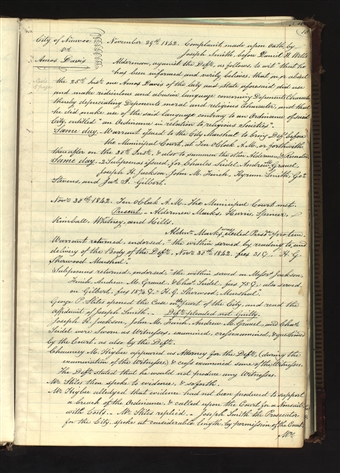 City of Nauvoo
vs
Amos Davis
November 29th 1842. Complaint made upon oath by
Joseph Smith, before Daniel H. Wells
Alderman, against the Deft, as follows to wit "that he
has been informed and verily believes that on or about
the 25th Inst one Amos Davis of the City and State aforesaid did use
and make ridiculous and abusive language concerning Deponents Character
thereby depreciating Deponents moral and religious Character, and that
he did make use of the said language contrary to an Ordinance of said
City, entitled "an Ordinance in relation to religious Societies".
Same day. Warrant issued to the City Marshal to bring Deft before
the Municipal Court, at Ten O'Clock A.M. or forthwith
thereafter on the 30th Inst, & also to summon the other Aldermen & Councillors
Same day. 2 Subpœnas issued, for Charles Andrew Gamet,
Joseph H. Jackson, John M. Finch, Hyrum Smith, Geo
Stevens, and Jas. T. Gilbert.
Nov. 30th 1842. Ten O'Clock A.M. The Municipal Court met
Present. Aldermen Marks, Harris, Spencer,
Kimball, Whitney, and Hills.
Aldern Marks, elected Presdt pro tem
Warrant returned, endorsed, "the within served by reading to and
delivery of the Body of the Deft, Nov. 30th 1842. fees H. G.
Sherwood Marshal".
Subpœnas returned, endorsed, "the within served on Messrs Jackson
Finch, Andrew M. Gamet & Chas fees also served
on Gilbert, fees H. G. Sherwood, Marshal.
George P. Stiles opened the Case on part of the City, and read the
affidavit of Joseph Smith. Deft pleaded not guilty.
Joseph H. Jackson, John M. Finch, Andrew M. Gamet, and Chas
were Sworn as Witnesses, examined, crossexamined, & questioned
by the Court, as also by the Deft.
Chauncey M. Higbee appeared as Attorney for the Deft, (during the
examination of the Witnesses) & cross examined some of the Witnesses.
The Deft stated that he would not produce any Witnesses.
Mr. Stiles then spoke to evidence, & so forth.
Mr. Higbee alledged that evidence had not been produced to support
a breach of the Ordinance, & called upon the Court for a nonsuit
with Costs. Mr. Stiles replied. Joseph Smith the Prosecutor
for the City, spoke at considerable length, by permission of the Court